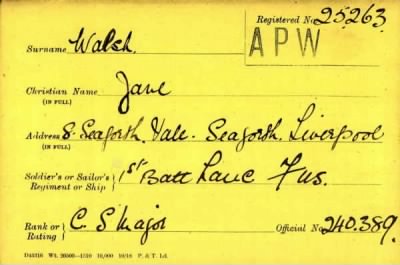 Registered No. 25263
Surname Walsh
APW
Christian Name Jane
(IN FULL)
Address 8. Seaforth. Vale. Seaforth. Liverpool
(IN FULL)
Soldier's or Sailor's Regiment or Ship 1st Batt Lanc Fus.
Rank or Rating C. S Major Official No. 240.389.
D45316 Wt. 20500—1510 10,000 10/16 P. & T. Ltd.